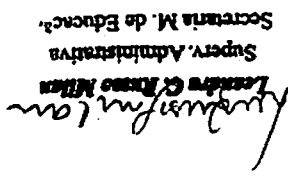 Leandro C. Russo Milan
Superv. Administrativa
Secretaria M. de Educaç².